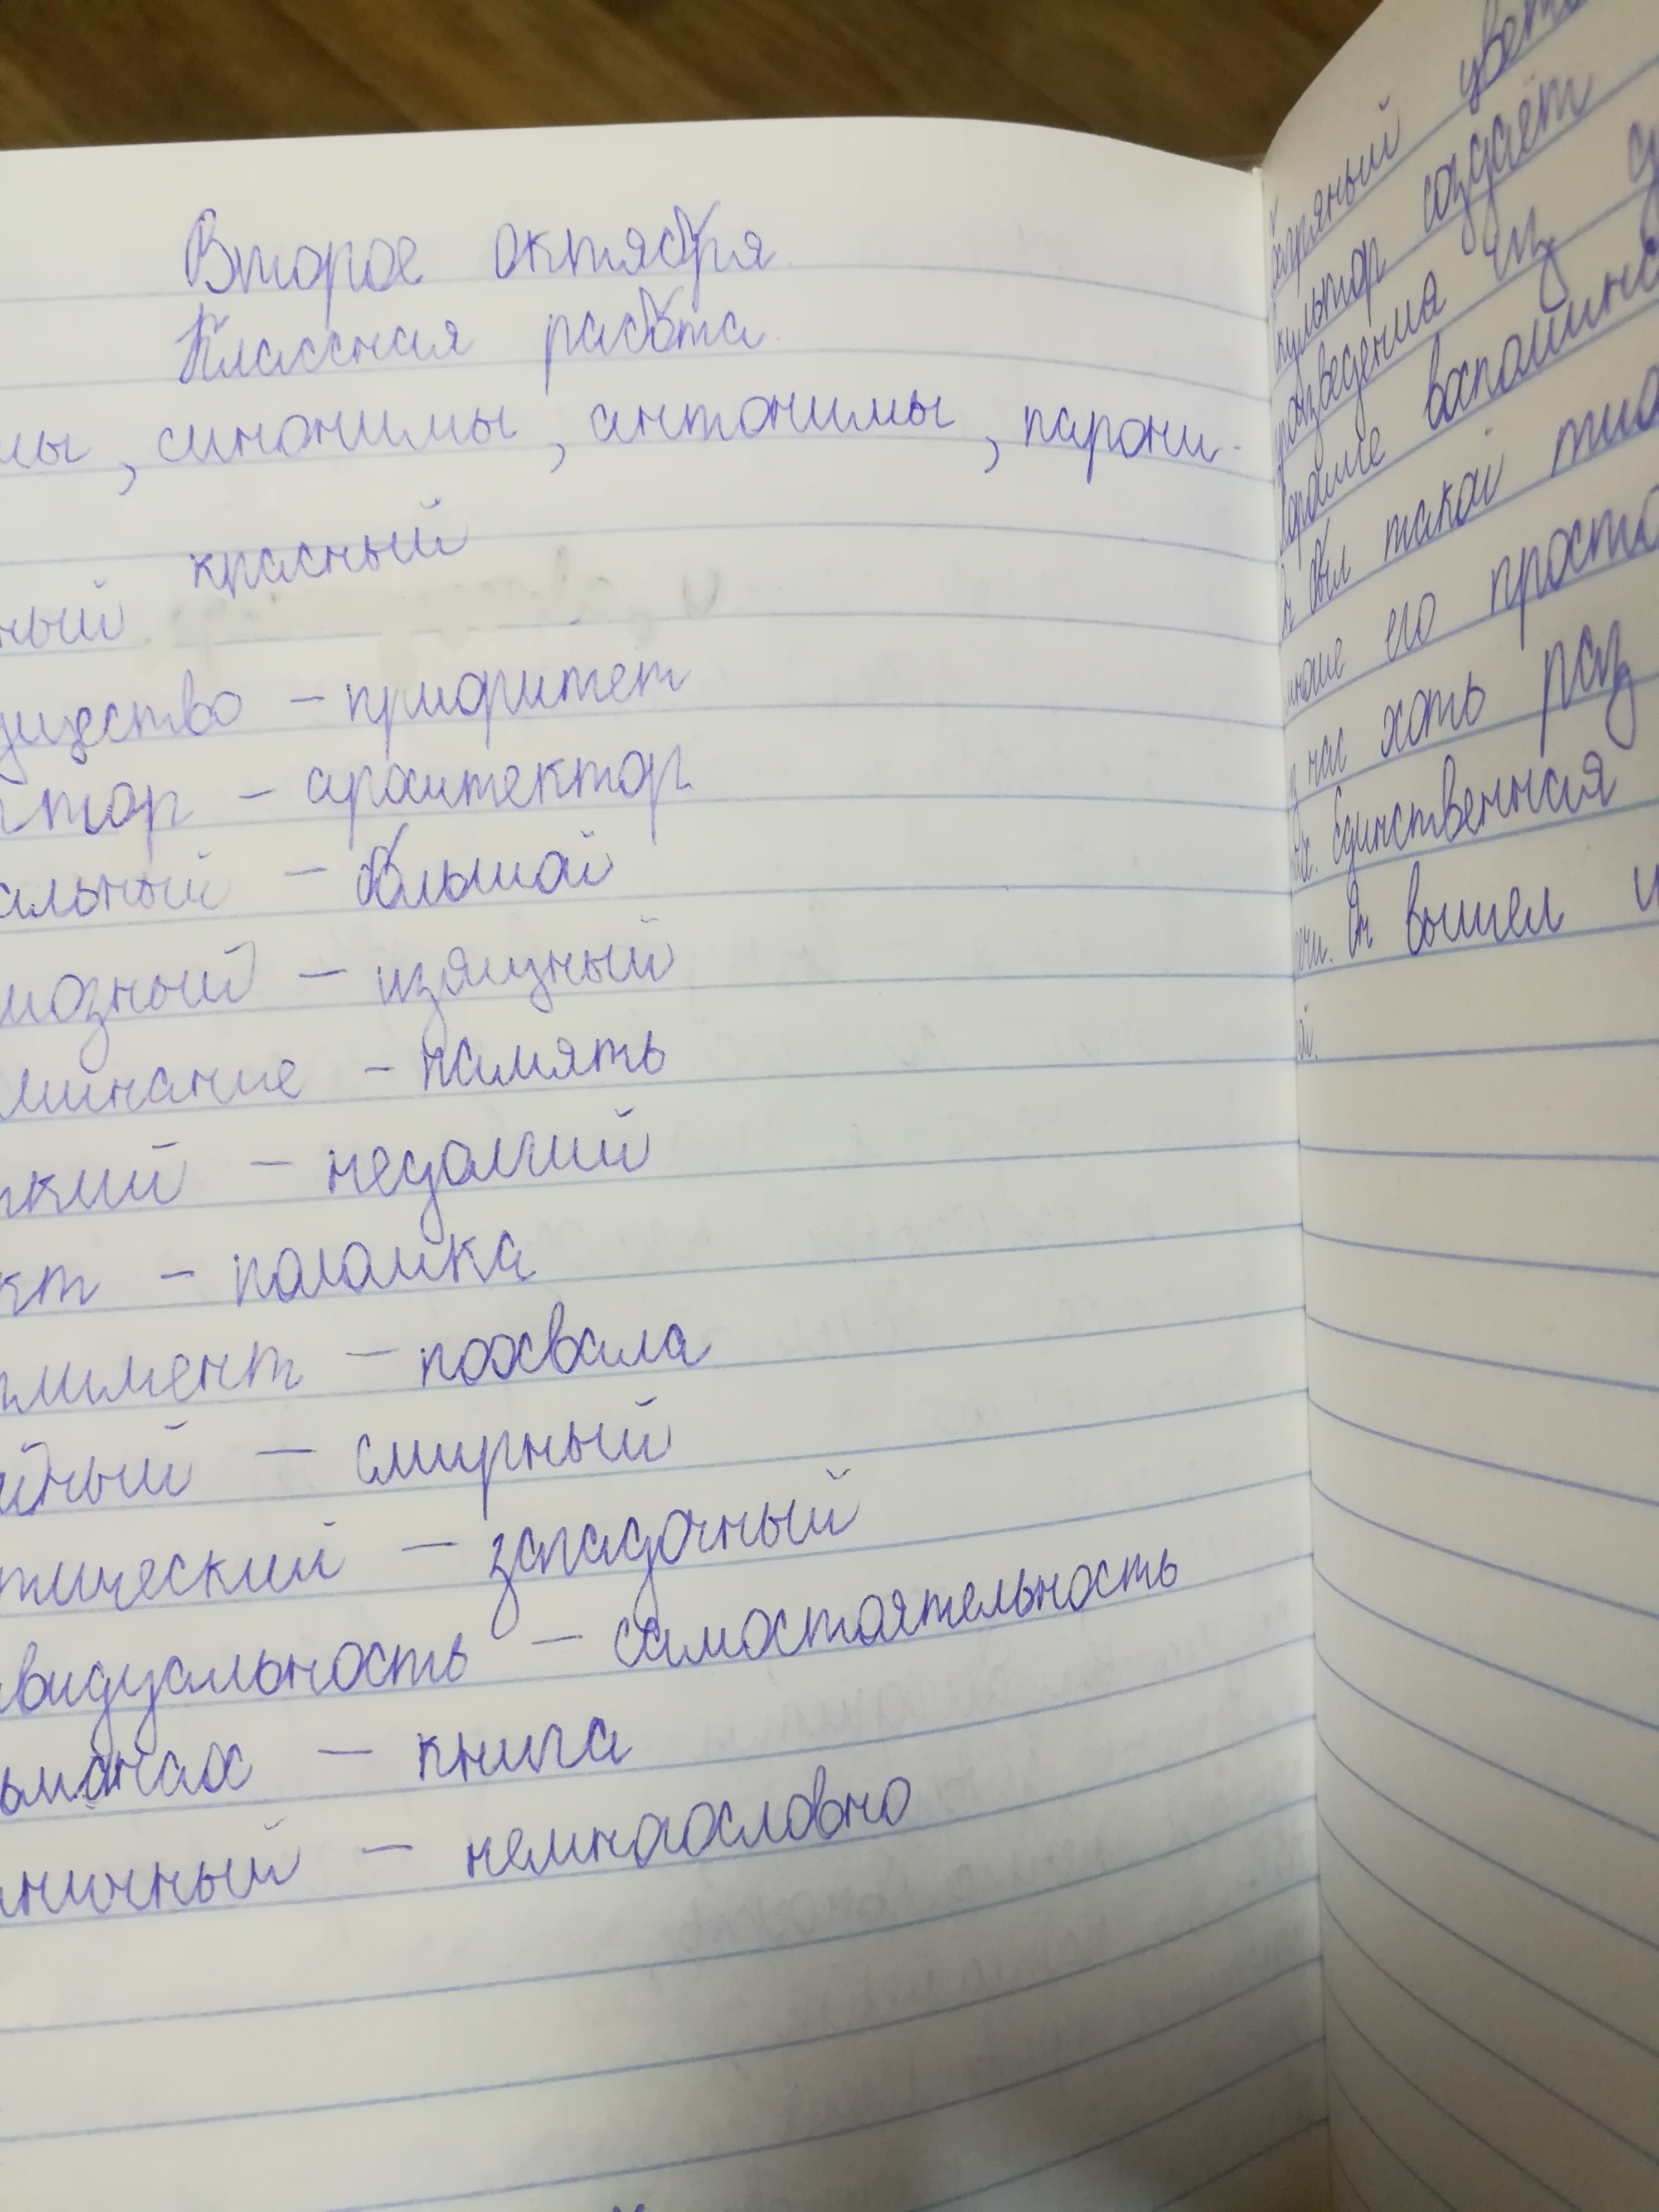 Второе октября.
Классная работа.
мы, синонимы, антонимы, парони-
красный
ный
ущество – приоритет
ктор – архитектор
альный – большой
иозный – изящный
минание – память
ткий – недолгий
кт – поломка
плимент – похвала
йный – смирный
тический – загадочный
видуальность – самостоятельность
ьманах – книга
ничный – немногословно
багряный
скульптор создаёт
произведения из
хорошие воспомина
был такой тихо
его просто
у нас хоть раз
Единственная
Он вышел и
й.